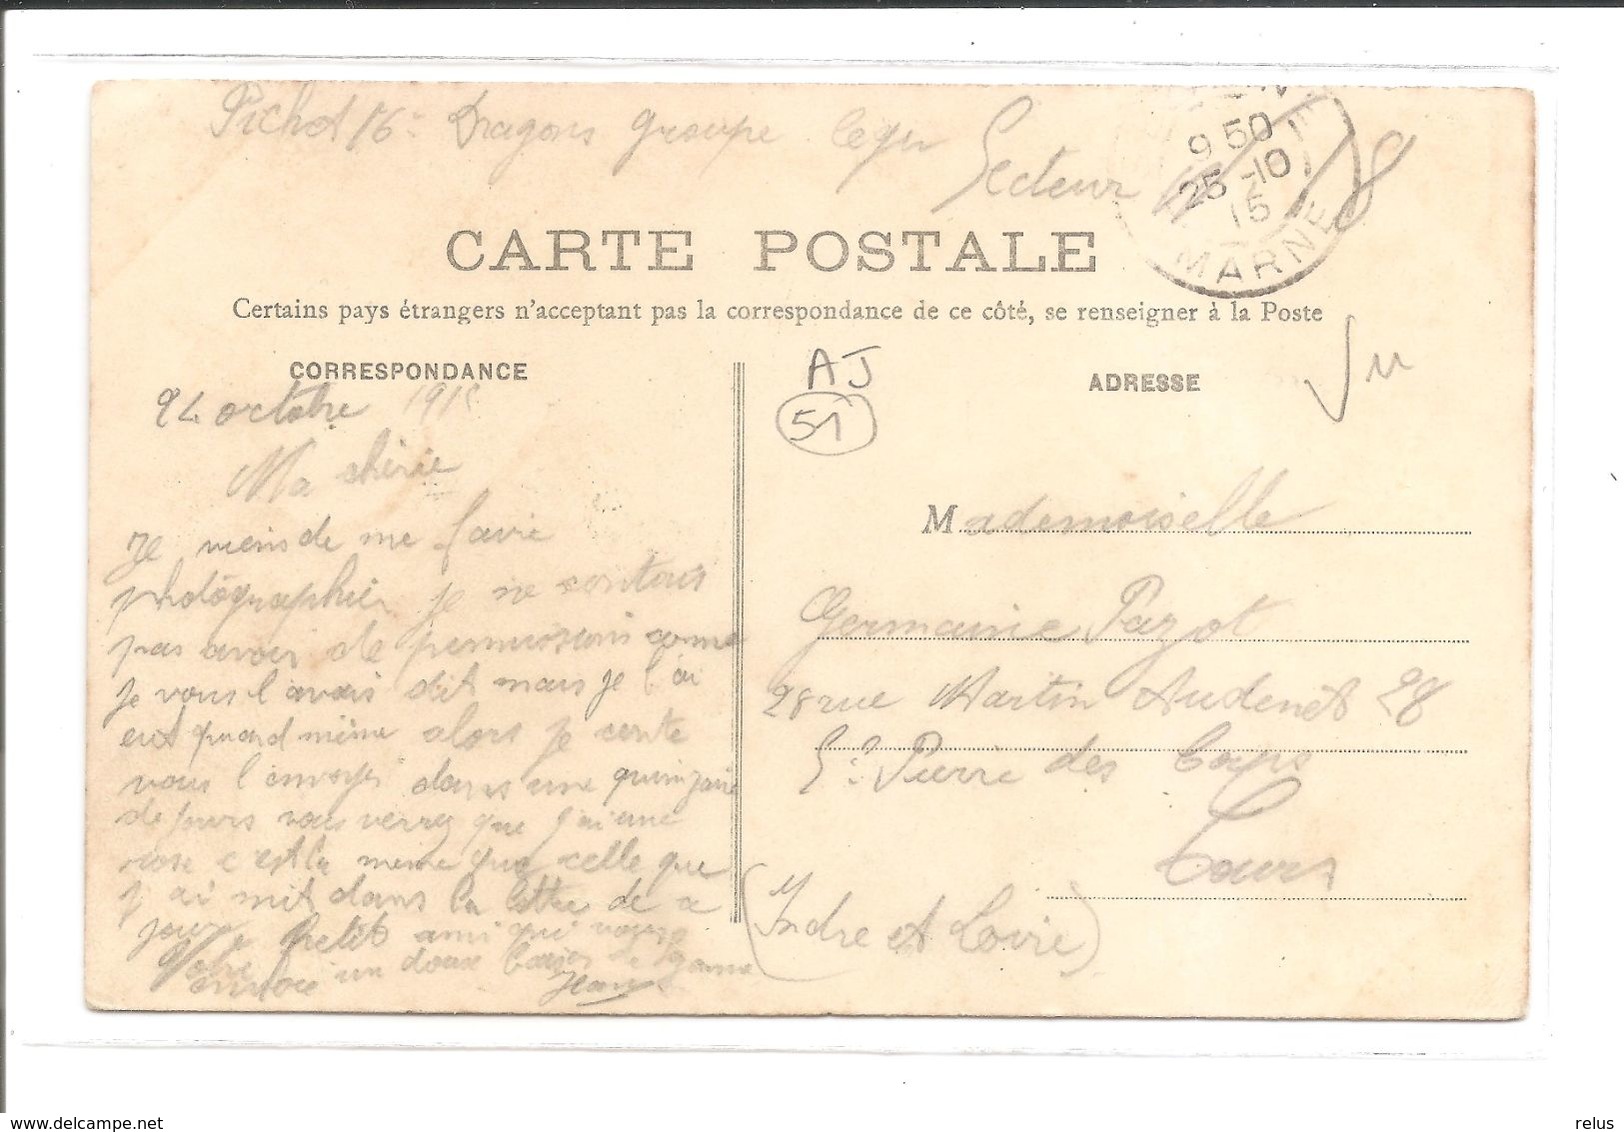 Pichot 16e Dragons groupe léger
Secteur 118
9 50
25 -10
15
MARNE
CARTE POSTALE
Certains pays étrangers n'acceptant pas la correspondance de ce côté, se renseigner à la Poste
CORRESPONDANCE
24 octobre 1915
Ma chérie
Je viens de me faire
photographier je ne contais
pas avoir de permissions comme
je vous l'avais dit mais je l'ai
eut quand même alors je conte
vous l'envoyer dans une quinzaine
de jours vous verrez que j'ai une
rose c'est la meme que celle que
j'ai mit dans la lettre de ce
jour
Votre petit ami qui vous
envoie un doux baiser
Jean
AJ
51
ADRESSE
Mademoiselle
Germaine Pazot
28 rue Martin Audenet 28
St Pierre des Corps
Tours
(Indre et Loire)
www.delcampe.net
relus